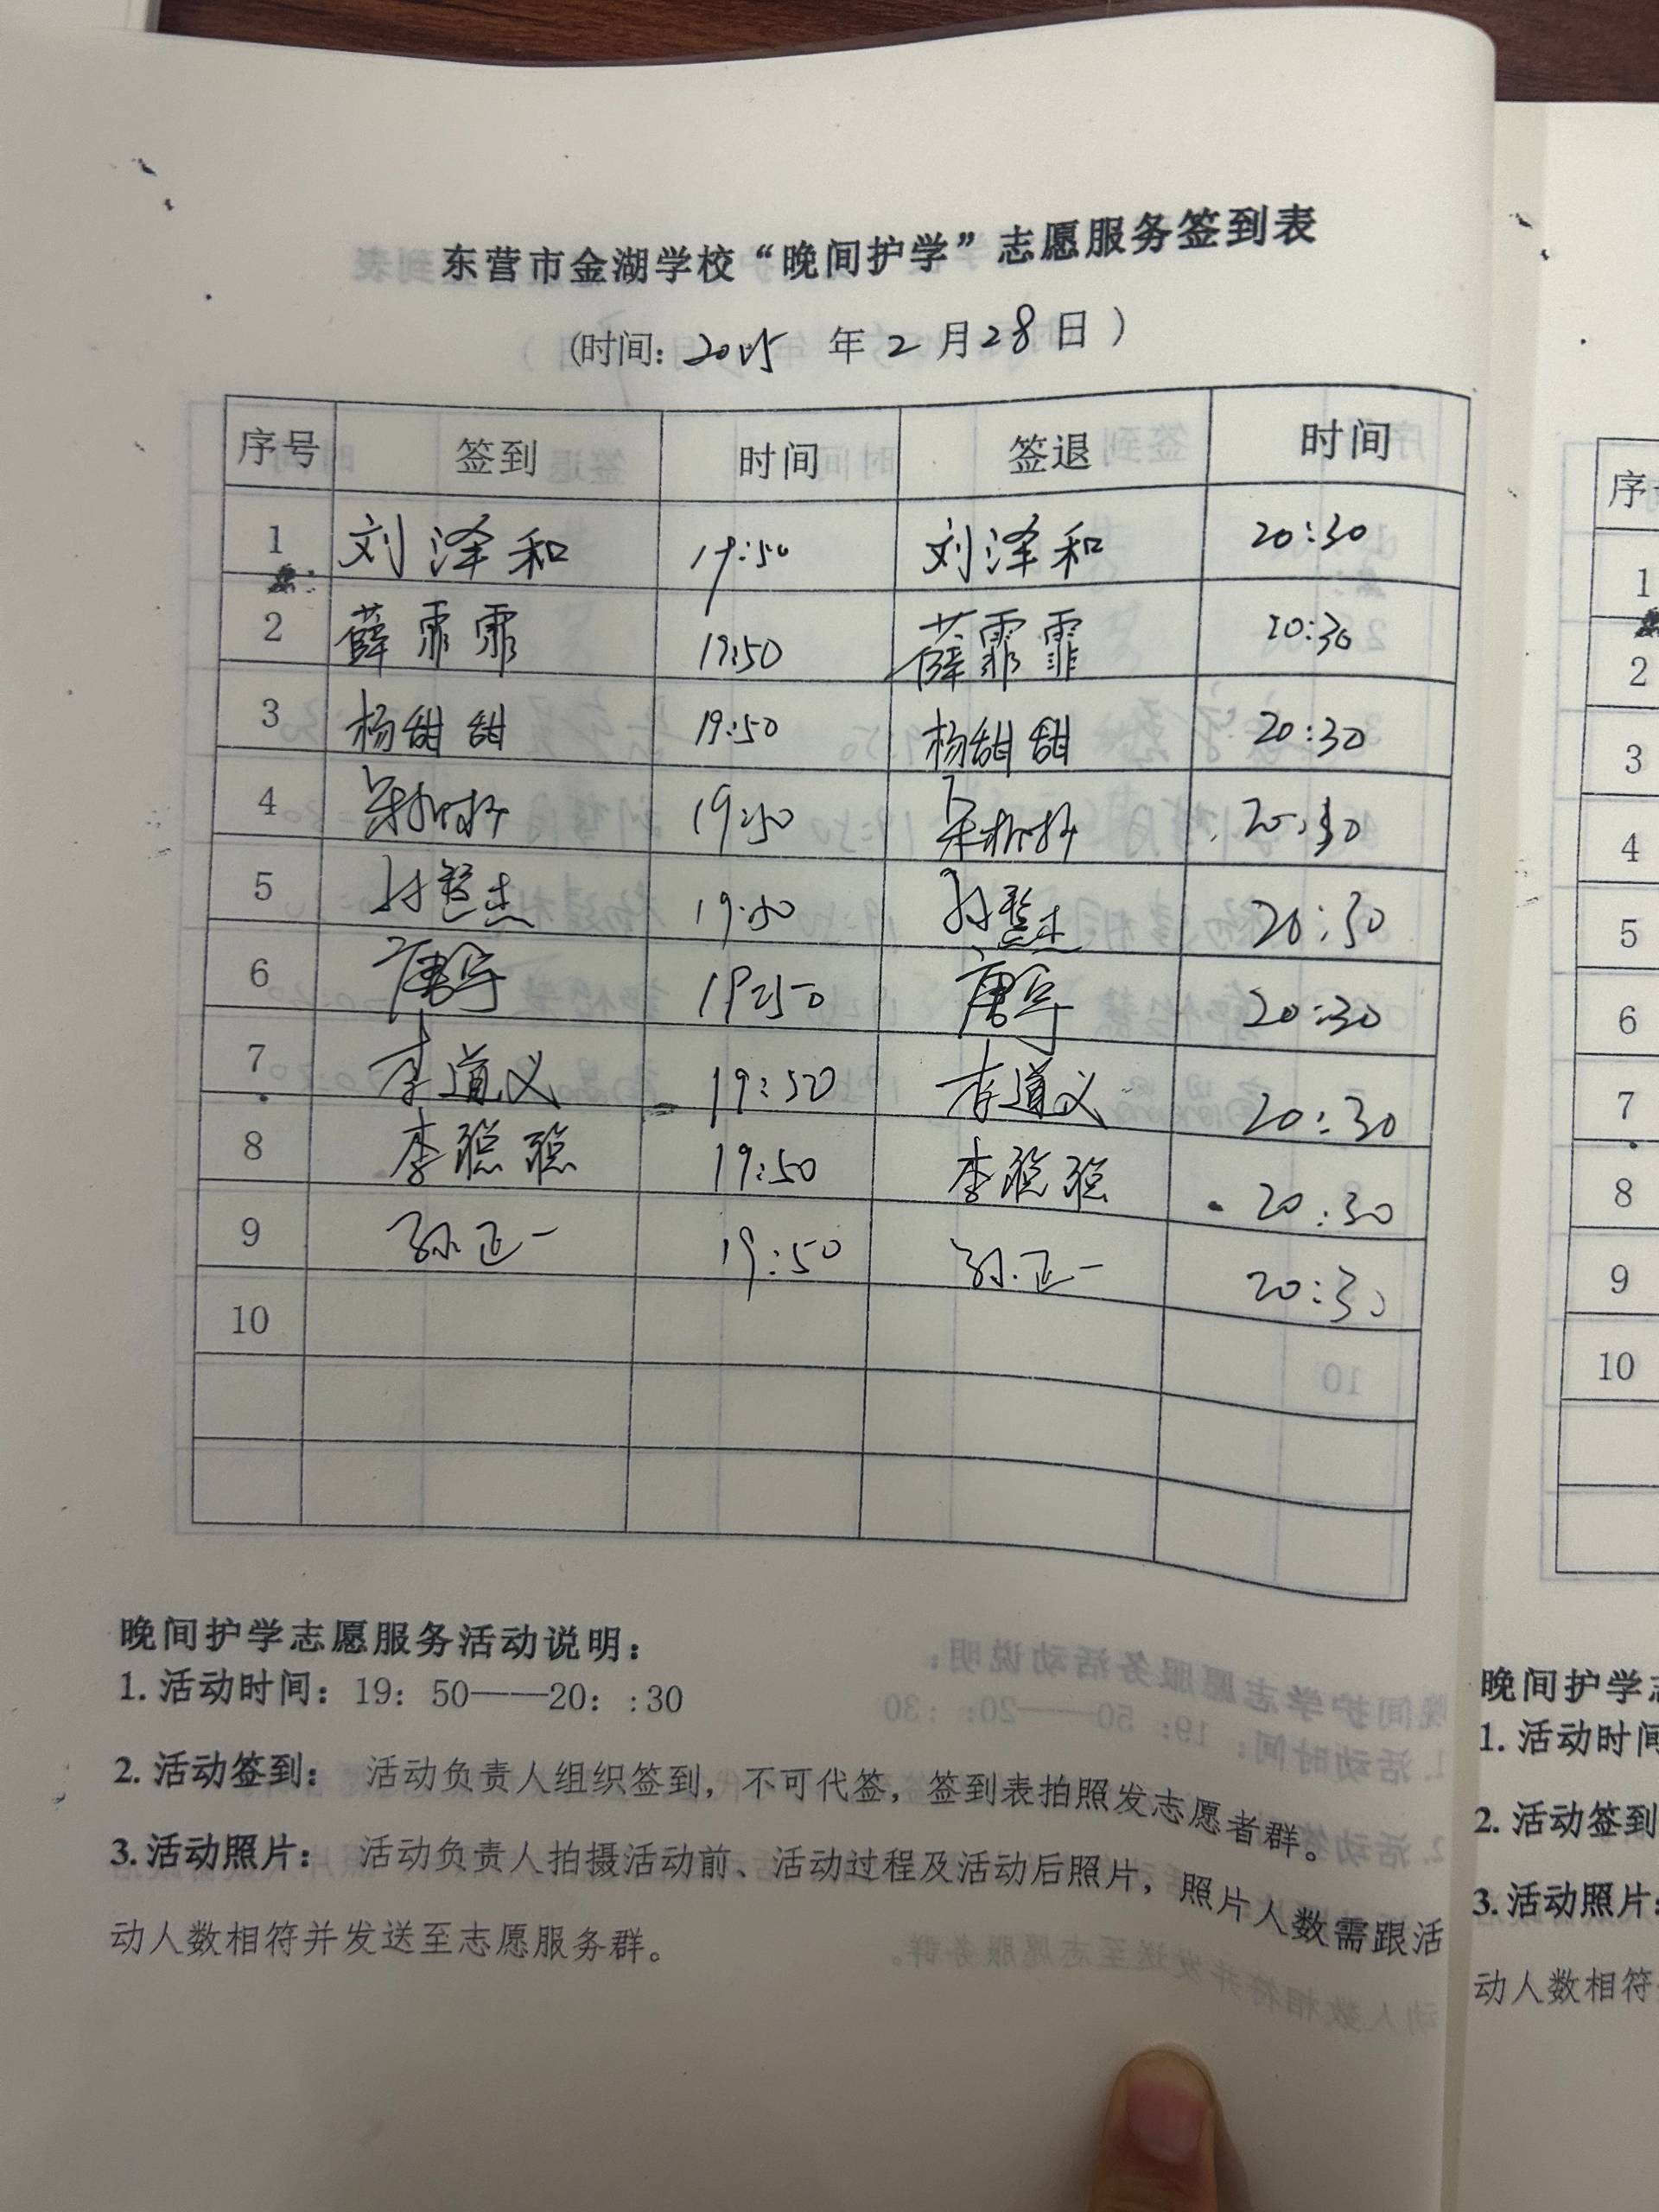 东营市金湖学校“晚间护学”志愿服务签到表
(时间: 2025 年 2 月 28 日 )
序号 签到 时间 签退 时间
1 刘泽和 19:50 刘泽和 20:30
2 薛霏霏 19:50 薛霏霏 20:30
3 杨甜甜 19:50 杨甜甜 20:30
4 19:50 20:30
5 19:50 20:30
6 唐宇 19:50 唐宇 20:30
7 李道义 19:50 李道义 20:30
8 李聪聪 19:50 李聪聪 20:30
9 孙正一 19:50 孙正一 20:30
10
晚间护学志愿服务活动说明：
1. 活动时间：19：50——20：:30
2. 活动签到： 活动负责人组织签到，不可代签，签到表拍照发志愿者群。
3. 活动照片： 活动负责人拍摄活动前、活动过程及活动后照片，照片人数需跟活
动人数相符并发送至志愿服务群。
序
1
2
3
4
5
6
7
8
9
10
晚间护学
1. 活动时间
2. 活动签到
3. 活动照片：
动人数相符